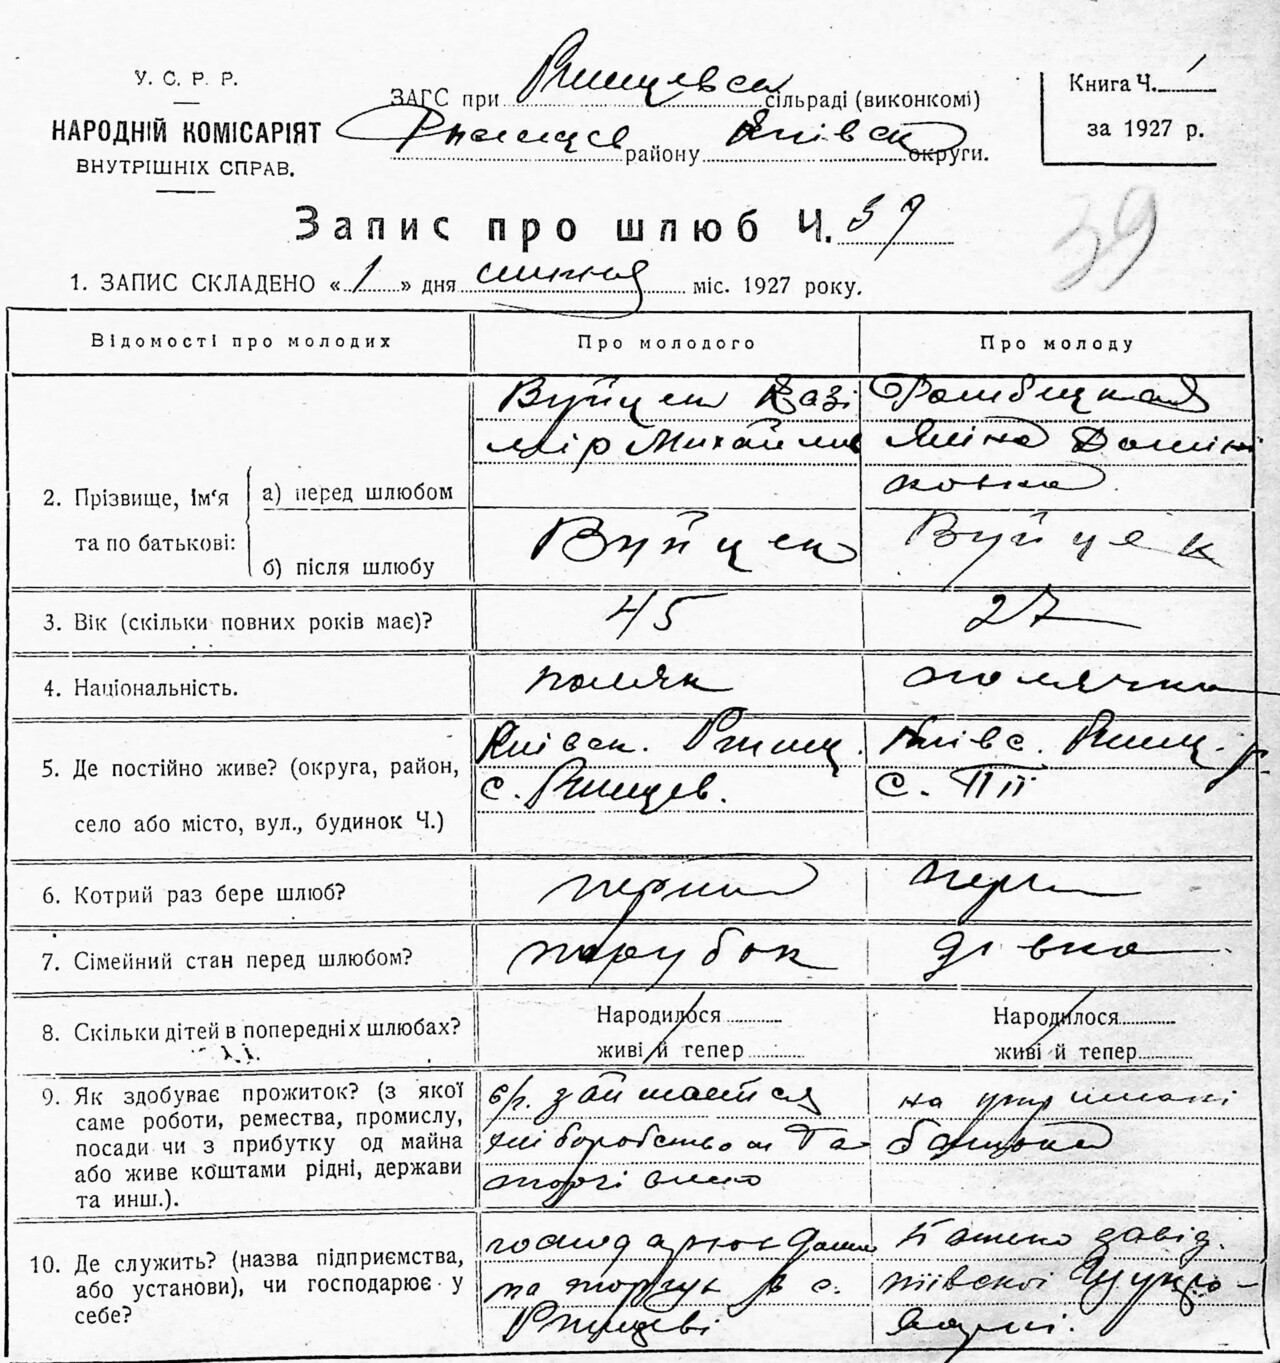 У. С. Р. Р.
НАРОДНІЙ КОМІСАРІЯТ
ВНУТРІШНІХ СПРАВ.
ЗАГС при Ржищевськ сільраді (виконкомі)
Ржищев району Київск округи.
Книга Ч. 1
за 1927 р.
Запис про шлюб Ч. 39
39
1. ЗАПИС СКЛАДЕНО « 1 » дня липня міс. 1927 року.
Відомості про молодих
Про молодого
Про молоду
2. Прізвище, ім‘я
та по батькові:
а) перед шлюбом
Вуйцек Казі
мір Михайлов
Яніна Доміні
ковна
б) після шлюбу
Вуйцек
Вуйцек
3. Вік (скільки повних років має)?
45
27
4. Національність.
поляк
полячка
5. Де постійно живе? (округа, район,
село або місто, вул., будинок Ч.)
Київск. Ржищ.
с. Ржищев.
Київс. Ржищ. р.
с. Пії
6. Котрий раз бере шлюб?
перший
перш
7. Сімейний стан перед шлюбом?
парубок
дівка
8. Скільки дітей в попередніх шлюбах?
Народилося
живі й тепер
Народилося
живі й тепер
9. Як здобуває прожиток? (з якої
саме роботи, ремества, промислу,
посади чи з прибутку од майна
або живе коштами рідні, держави
та инш.).
займается
хліборобством та
торгівлею
на утриманні
батька
10. Де служить? (назва підприємства,
або установи), чи господарює у
себе?
господарює дома
та торгує в с.
Ржищеві
Батько завід.
півської цукро-
варні.